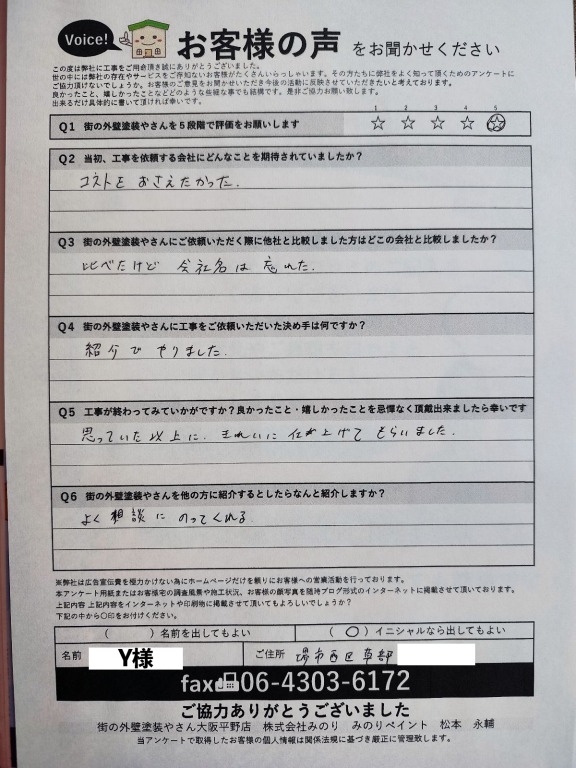 Voice!
お客様の声 をお聞かせください
この度は弊社に工事をご用命頂き誠にありがとうございました。
世の中には弊社の存在やサービスをご存知ないお客様がたくさんいらっしゃいます。その方たちに弊社をよく知って頂くためのアンケートに
ご協力頂けないでしょうか。お客様のご意見をお聞かせいただき今後の活動に反映させていただきたいと考えております。
良かったこと、嬉しかったことなどどのような些細な事でも結構です。是非ご協力お願い致します。
出来るだけ具体的に書いて頂ければ幸いです。
1 2 3 4 5
Q1 街の外壁塗装やさんを5段階で評価をお願いします ☆ ☆ ☆ ☆ ☆
Q2 当初、工事を依頼する会社にどんなことを期待されていましたか？
コストを おさえたかった.
Q3 街の外壁塗装やさんにご依頼いただく際に他社と比較しました方はどこの会社と比較しましたか？
比べたけど 会社名は 忘れた.
Q4 街の外壁塗装やさんに工事をご依頼いただいた決め手は何ですか？
紹介で やりました.
Q5 工事が終わってみていかがですか？良かったこと・嬉しかったことを忌憚なく頂戴出来ましたら幸いです
思っていた以上に. きれいに 仕上げて もらいました.
Q6 街の外壁塗装やさんを他の方に紹介するとしたらなんと紹介しますか？
よく 相談に のってくれる
※弊社は広告宣伝費を極力かけない為にホームページだけを頼りにお客様への営業活動を行っております。
本アンケート用紙またはお客様宅の調査風景や施工状況、お客様の顔写真を随時ブログ形式のインターネットに掲載させて頂いております。
上記内容 上記内容をインターネットや印刷物に掲載させて頂いてもよろしいでしょうか？
下記の中から〇印をお付けください。
（ ）名前を出してもよい （ 〇 ）イニシャルなら出してもよい
名前 Y様 ご住所 堺市西区草部
fax 06-4303-6172
ご協力ありがとうございました
街の外壁塗装やさん大阪平野店 株式会社みのり みのりペイント 松本 永輔
当アンケートで取得したお客様の個人情報は関係法規に基づき厳正に管理致します。